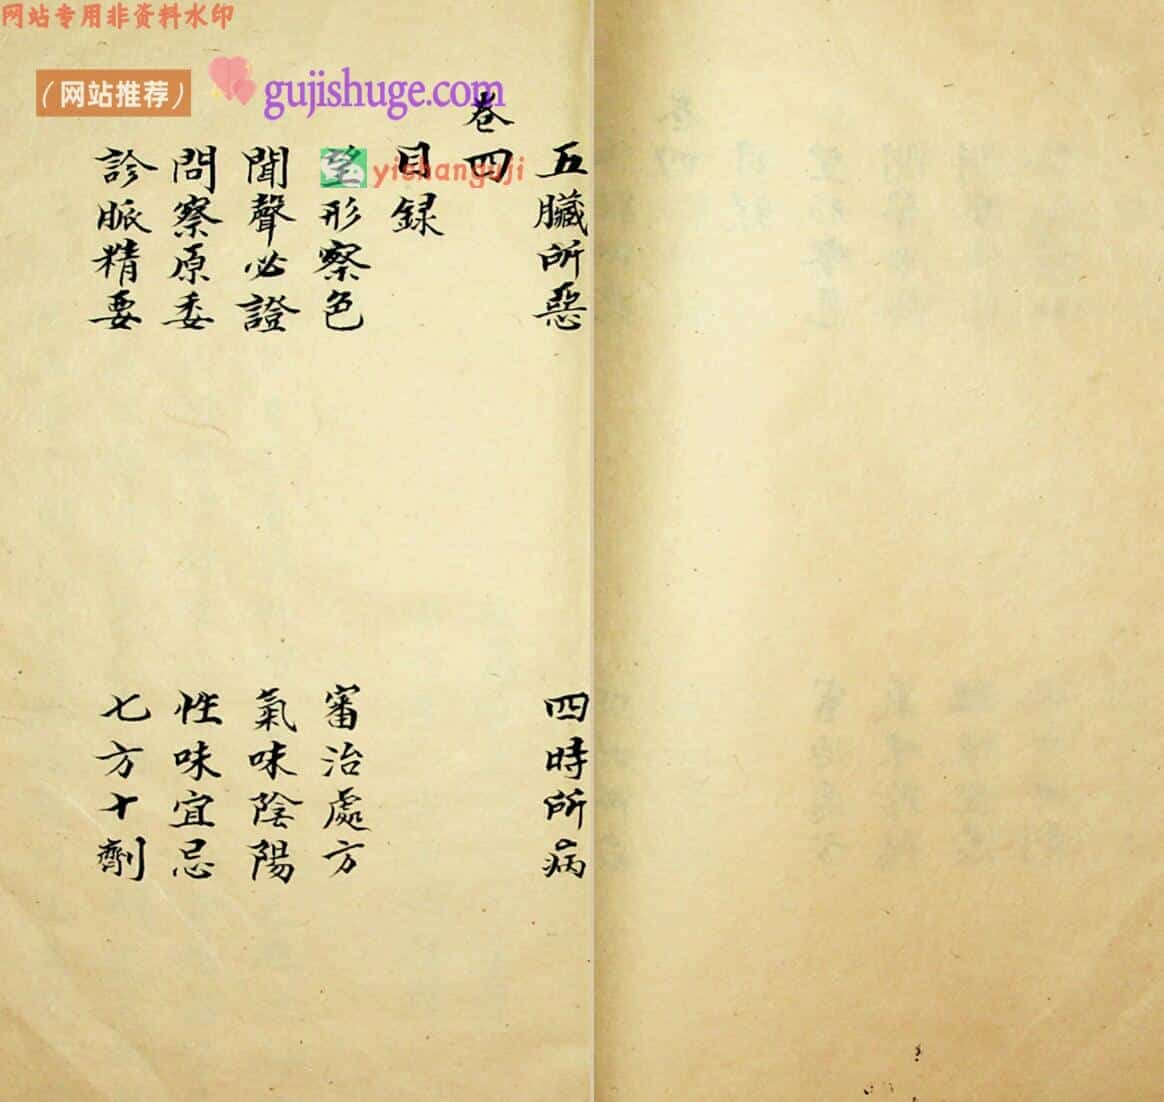 网站专用非资料水印
（网站推荐）
gujishuge.com
yishanguji
五臟所惡
四時所病
卷四
目録
望形察色
審治處方
聞聲必證
氣味陰陽
問察原委
性味宜忌
診脈精要
七方十劑